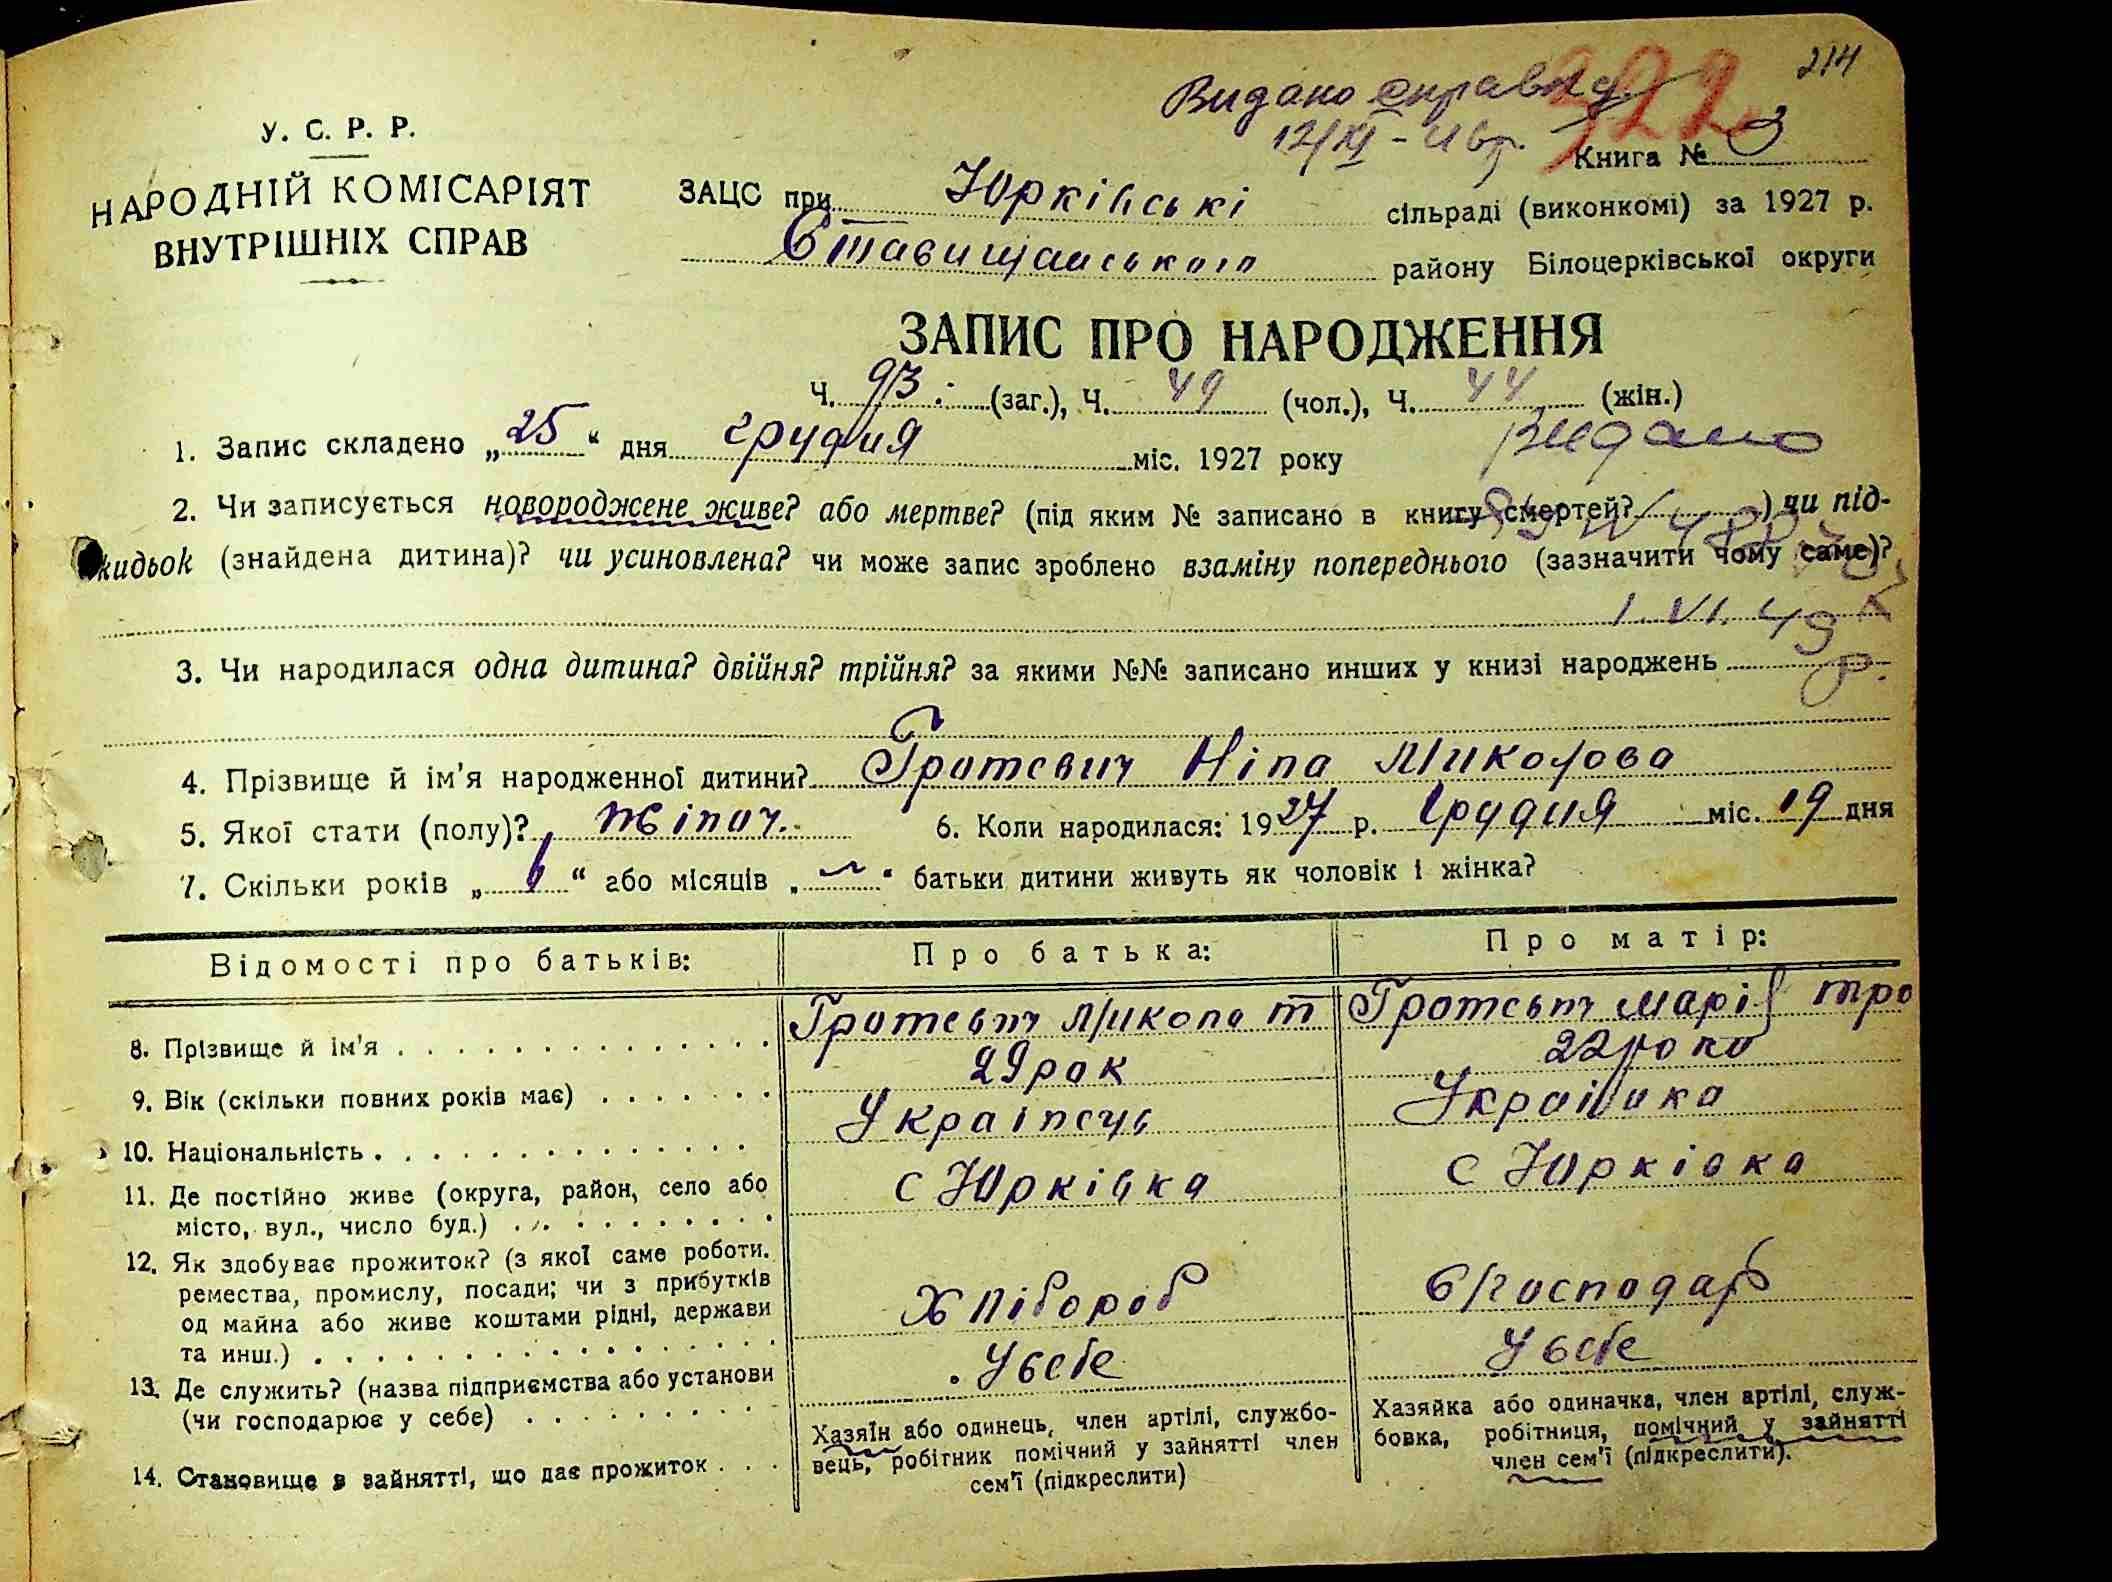 214
Видано справка 322
12/XI - 46р. Книга № 3
У. С. Р. Р.
НАРОДНІЙ КОМІСАРІЯТ
ВНУТРІШНІХ СПРАВ
ЗАЦС при Юрківські сільраді (виконкомі) за 1927 р.
Ставищанського району Білоцерківської округи
ЗАПИС ПРО НАРОДЖЕННЯ
Ч. 93 (заг.), Ч. 49 (чол.), Ч. 44 (жін.)
1. Запис складено „25“ дня грудня міс. 1927 року Видано
2. Чи записується новороджене живе? або мертве? (під яким № записано в книгу смертей? ) чи під-
кидьок (знайдена дитина)? чи усиновлена? чи може запис зроблено взаміну попереднього (зазначити чому саме)?
1. VI. 49 р.
3. Чи народилася одна дитина? двійня? трійня? за якими №№ записано инших у книзі народжень
4. Прізвище й ім’я народженної дитини? Гротевич Ніна Миколова
5. Якої стати (полу)? жіноч. 6. Коли народилася: 1927 р. Грудня міс. 19 дня
7. Скільки років „ “ або місяців „ “ батьки дитини живуть як чоловік і жінка?
Відомості про батьків: Про батька: Про матір:
8. Прізвище й ім’я Гротевич Микола Т Гротевич Марія Тро
9. Вік (скільки повних років має) 29 рок 22 роки
10. Національність Українець Українка
11. Де постійно живе (округа, район, село або
місто, вул., число буд.) с Юрківка с Юрківка
12. Як здобуває прожиток? (з якої саме роботи.
ремества, промислу, посади; чи з прибутків
од майна або живе коштами рідні, держави
та инш.) Хлібороб в/господар
13. Де служить? (назва підприємства або установи
(чи господарює у себе) У себе У себе
14. Становище в зайнятті, що дає прожиток
Хазяїн або одинець, член артілі, службо-
вець, робітник помічний у зайнятті член
сем’ї (підкреслити)
Хазяйка або одиначка, член артілі, служ-
бовка, робітниця, помічний у зайнятті
член сем’ї (підкреслити).